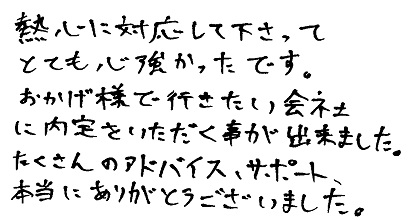 熱心に対応して下さって
とても心強かったです。
おかげ様で行きたい会社
に内定をいただく事が出来ました。
たくさんのアドバイス、サポート、
本当にありがとうございました。